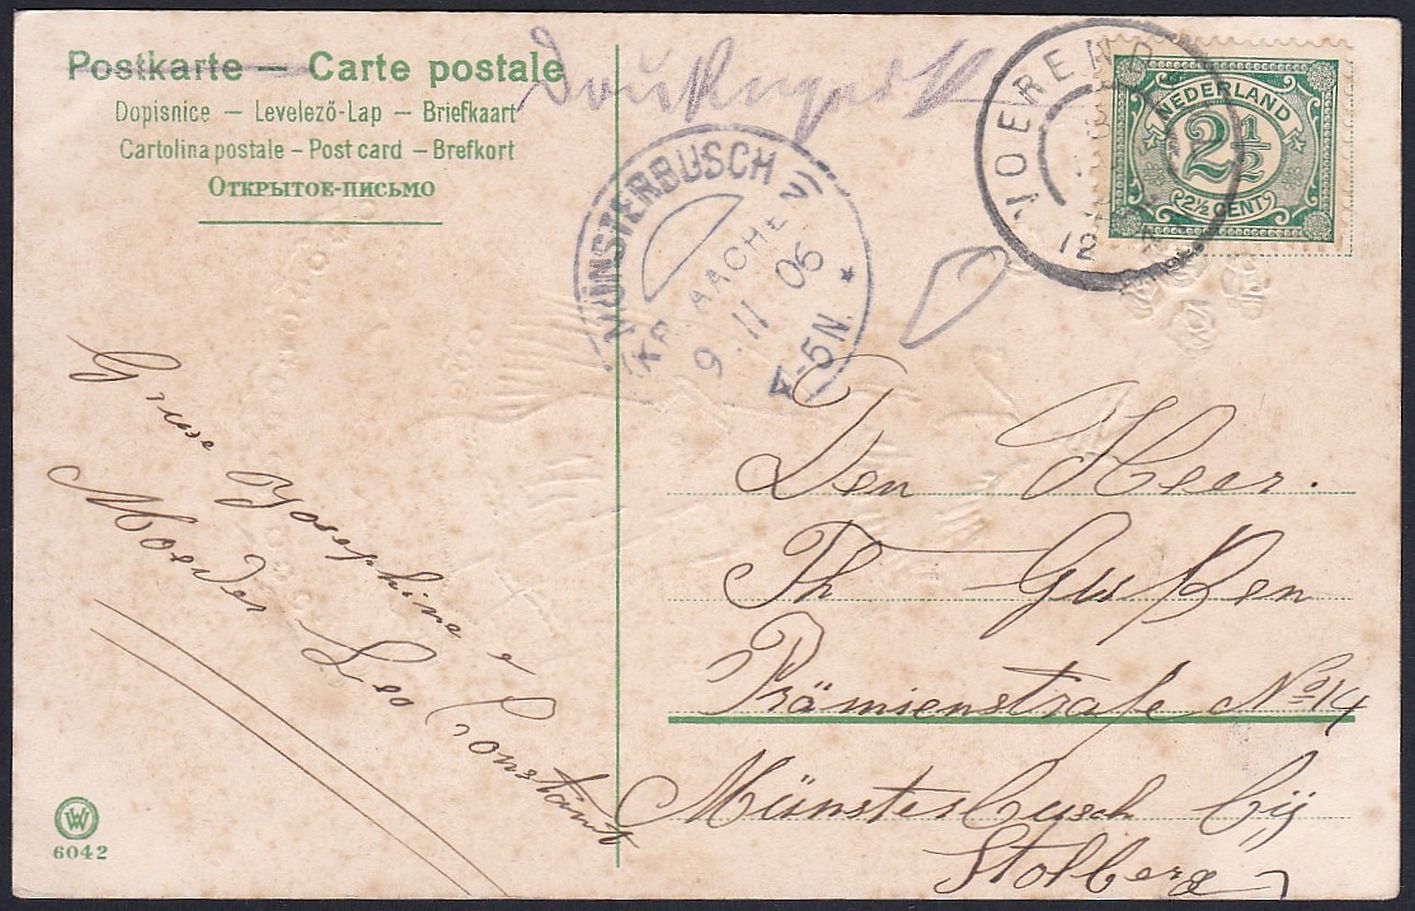 Postkarte — Carte postale
Dopisnice — Levelező-Lap — Briefkaart
Cartolina postale – Post card — Brefkort
Открытое-письмо
Drukwerk
MÜNSTERBUSCH
(KR. AACHEN)
9.11 06
4-5N.
*
12
NEDERLAND
2 1/2
2½ CENT
Gruse Josephine e
Moeder Leo Constant
Den Heer.
Th Gußen
Prämienstraße No 14
Münsterbusch bij
Stolberg
WW
6042